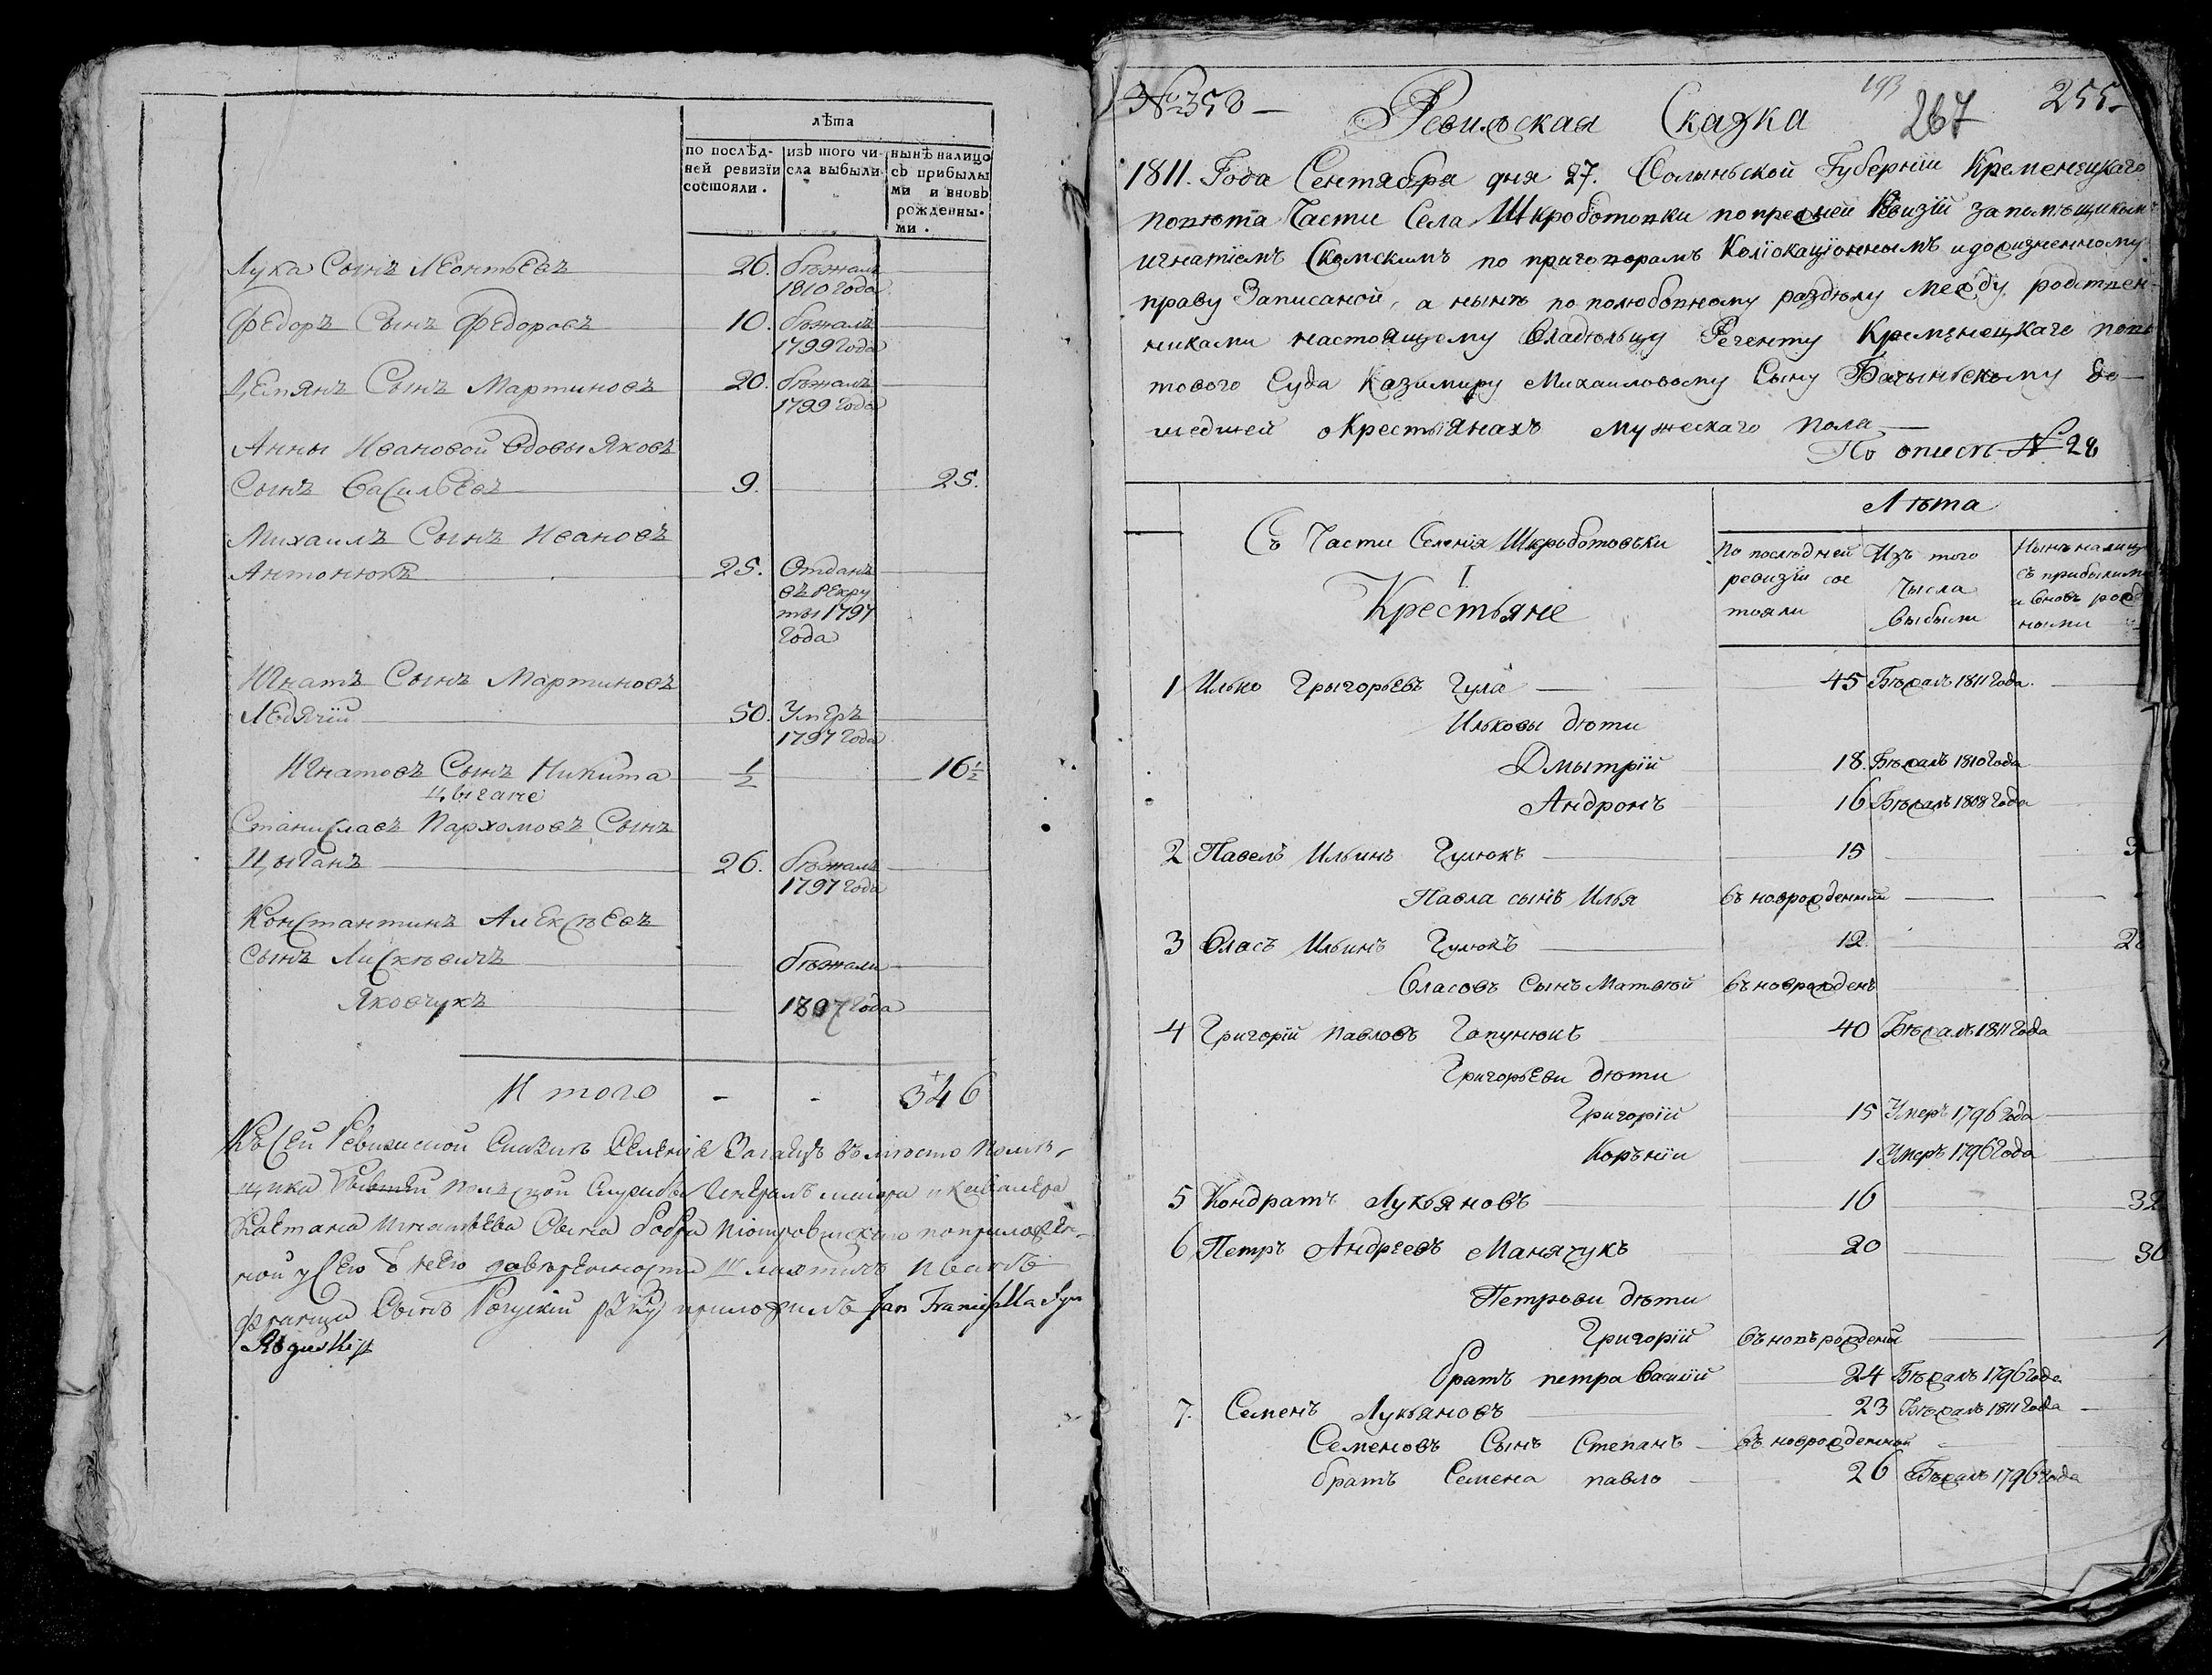 лѣта
по послѣд- изъ того чи- нынѣ налицо
ней ревизїи сла выбыли съ прибылы
состояли. ми и вновь
рожденны-
ми.
Лука Сынъ Леонтьевъ 26. бѣжалъ
1810 года
Федоръ Сынъ Федоровъ 10. бѣжалъ
1799 года
Демянъ Сынъ Мартиновъ 20. бѣжалъ
1799 года
Анны Ивановой вдовы Яковъ
Сынъ Васильевъ 9. 25.
Михаилъ Сынъ Ивановъ
Антонюкъ 25. Отданъ
въ рекру
ты 1797
года
Игнатъ Сынъ Мартиновъ
Ледячїй 50. Умеръ
1797 года
Игнатовъ Сынъ Никита 1/2 16 1/2
цыгане
Станиславъ Пархомовъ Сынъ
Цыганъ 26. бѣжалъ
1797 года
Константинъ Алексѣевъ
сынъ Лискѣвичъ бѣжали
Яковчукъ 1807 года
Итого - - 346
Къ сей Ревизской Сказкѣ Селенїя вмѣсто Помѣ-
щика Польской Службы Генералъ маїора и Кавалера
Каетана Игнатьева Сына Піотровицкаго по приложен-
ной у сего отъ него довѣренности шляхтичъ Иванъ
Франца Сынъ Рогускїй руку приложилъ Jan Franciszka Syn
Roguski
№ 358 — 193 267 255-
Ревизская Сказка
1811. Года Сентября дня 27. Волыньской Губернїи Кременецкаго
повѣта Части Села Шкроботовки по прежней Ревизїи за помѣщикомъ
игнатїемъ Скамскимъ по приговорамъКолїокацїоннымъ и дожизненному
праву Записаной, а нынѣ по полюбовному раздѣлу между родствен-
никами настоящему Владѣльцу Регенту Кремянецкаго повѣ
тового Суда Казимиру Михаиловому Сыну Бачыньскому до-
шедшей о Крестьянахъ мужескаго пола —
По описѣ № 28
Лѣта
Съ Части Селенїя Шкроботовъки По послѣдней Изъ того Нынѣ налицо
I. ревизїи сос числа съ прибылыми
Крестьяне тояли выбыли и вновь рожд
ными
1 Илько Грыгорьевъ Гула — 45 Бѣжалъ 1811 года.
Ильковы дѣти
Дмытрїй 18. Бѣжалъ 1810 года
Андронъ 16 Бѣжалъ 1808 года
2 Павелъ Ильинъ Гулюкъ 15 3
Павла сынъ Илья въ новрожденнїй
3 Власъ Ильинъ Гулюкъ 12. 2
Власовъ Сынъ Матвѣй въ новрожденъ
4 Григорїй Павловъ Гапунюкъ 40 Бѣжалъ 1811 года
Григорьеви дѣти
Григорїй 15 Умеръ 1796 года
Корънїи 1 Умеръ 1796 года
5 Кондратъ Лукьяновъ 16 32
6 Петръ Андреевъ Манячукъ 20 36
Петрови дѣти
Григорїй въ новърождены 1
братъ петра Василїй 24 Бѣжалъ 1796 года
7. Семенъ Лукьяновъ 23 Бѣжалъ 1811 года
Семеновъ Сынъ Степанъ въ новрожденной
братъ Семена павло 26 Бѣжалъ 1796 года